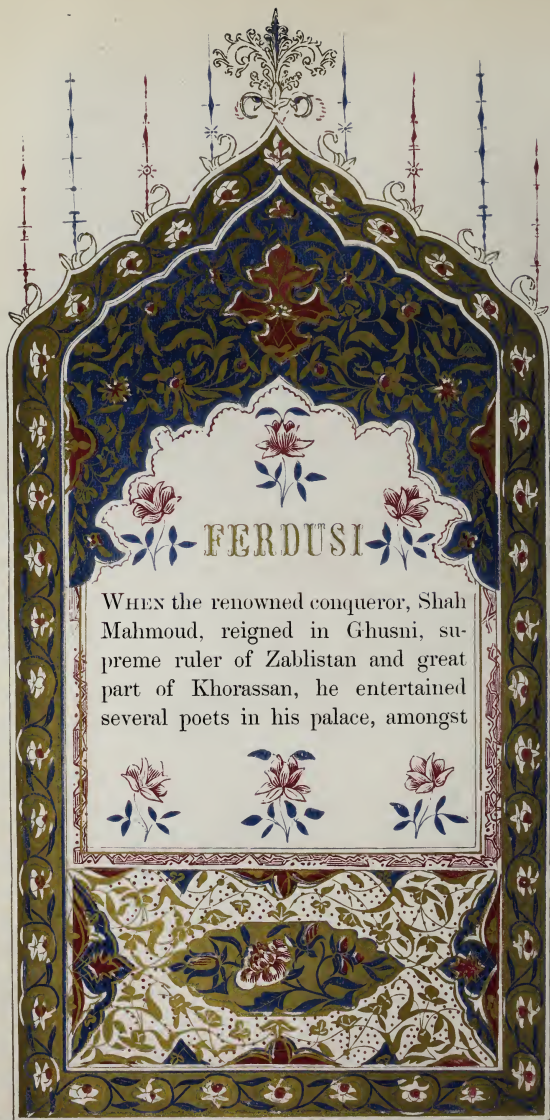 FERDUSI
WHEN the renowned conqueror, Shah
Mahmoud, reigned in Ghusni, su-
preme ruler of Zablistan and great
part of Khorassan, he entertained
several poets in his palace, amongst